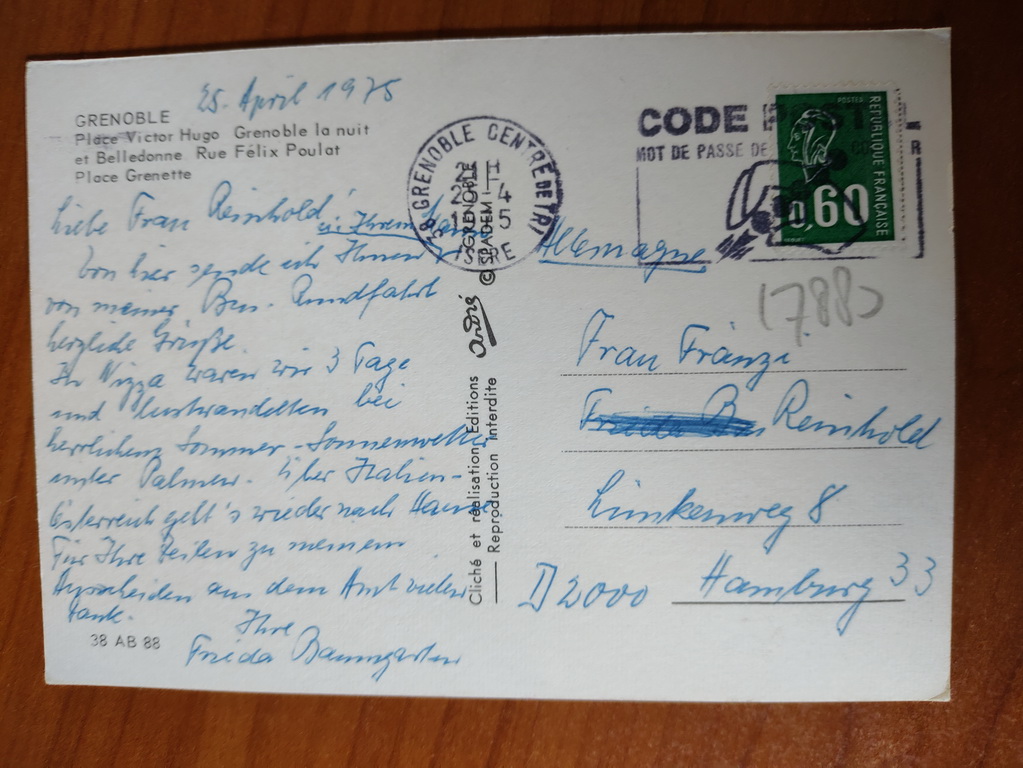 25. April 1975
GRENOBLE
Place Victor Hugo Grenoble la nuit
et Belledonne Rue Félix Poulat
Place Grenette
Liebe Frau Reinhold,
in Ihrem
Von hier sende ich Ihnen
von meiner Bus-Rundfahrt
herzliche Grüße.
In Nizza waren wir 3 Tage
und lustwandelten bei
herrlichem Sommer-Sonnenwetter
unter Palmen. Über Italien-
Österreich geht's wieder nach Hause
Für Ihre Zeilen zu meinem
Ausscheiden aus dem Amt vielen
Dank.
Ihre
Frieda Baumgarten
38 AB 88
38 GRENOBLE CENTRE DE TRI
ISERE
GRENOBLE
© SPADEM
André
Cliché et réalisation Editions
Reproduction interdite
CODE
MOT DE PASSE DE
POSTES
REPUBLIQUE FRANÇAISE
0,60
Allemagne
(788)
Frau Fränzi
Reinhold
Lünkenweg 8
D 2000 Hamburg 33